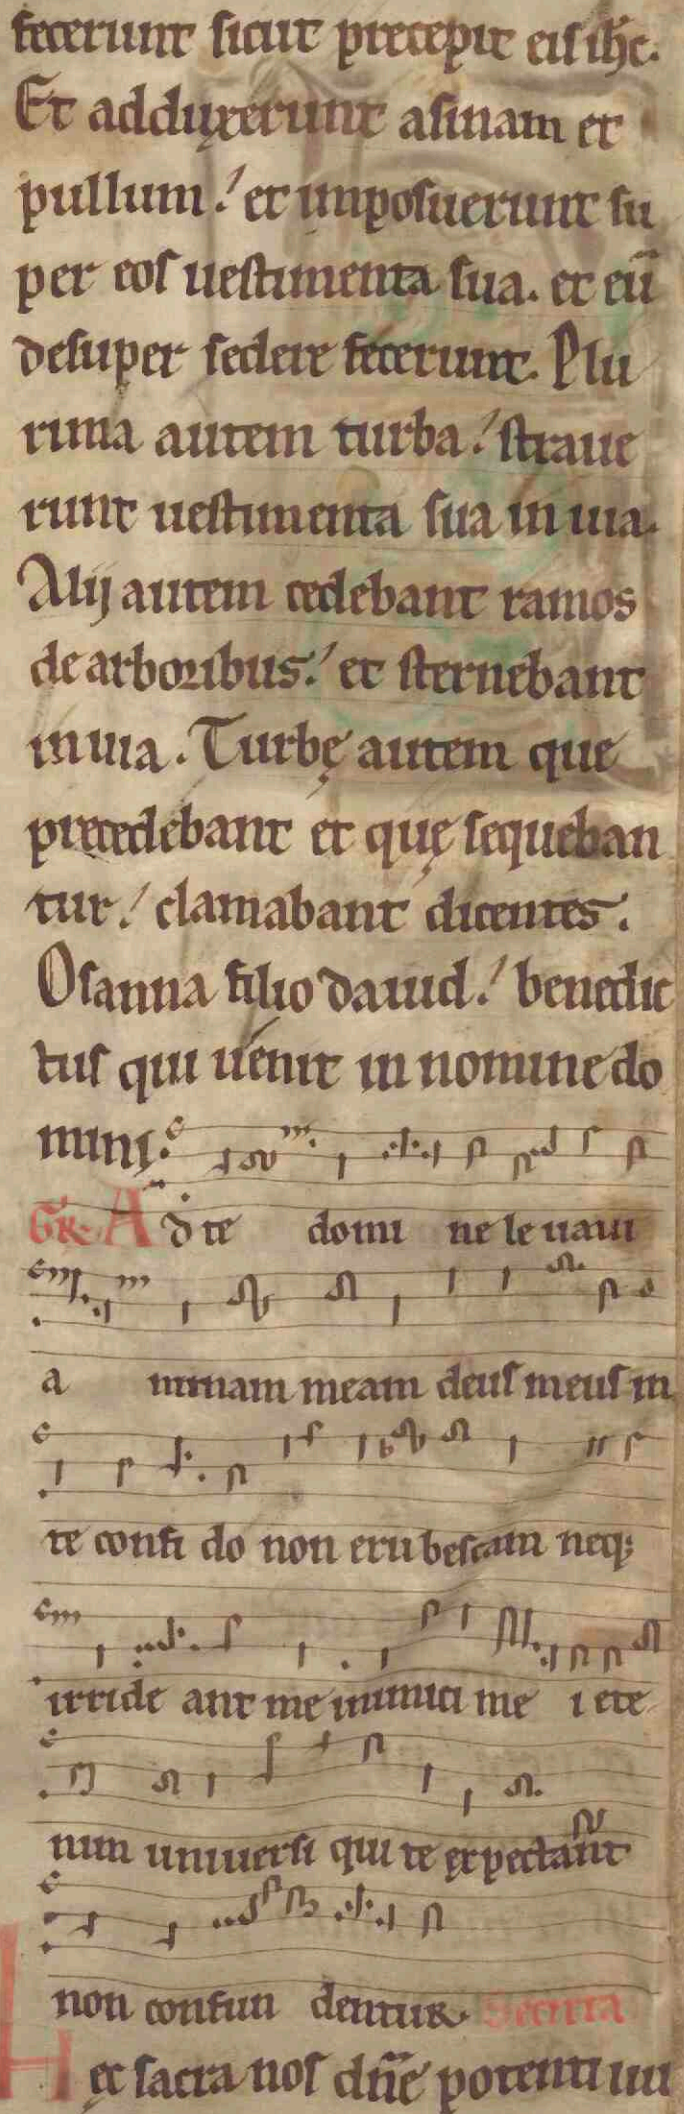 fecerunt sicut precepit eis ihc̅.
Et adduxerunt asinam et
pullum. et imposuerunt su
per eos uestimenta sua. et eu̅
desuper sedere fecerunt. Plu
rima autem turba. straue
runt uestimenta sua in uia.
Alij autem cedebant ramos
de arboribus. et sternebant
in uia. Turbę autem que
precedebant et quę sequeban
tur. clamabant dicentes.
Osanna filio dauid. benedic
tus qui uenit in nomine do
mini.
GR. Ad te domi ne le uaui
a nimam meam deus meus in
te confi do non eru bescam neq;
irride ant me inimici me i ete
nim uniuersi qui te expectant
non confun dentur. Secreta
Hęc sacra nos dn̅e potenti uir